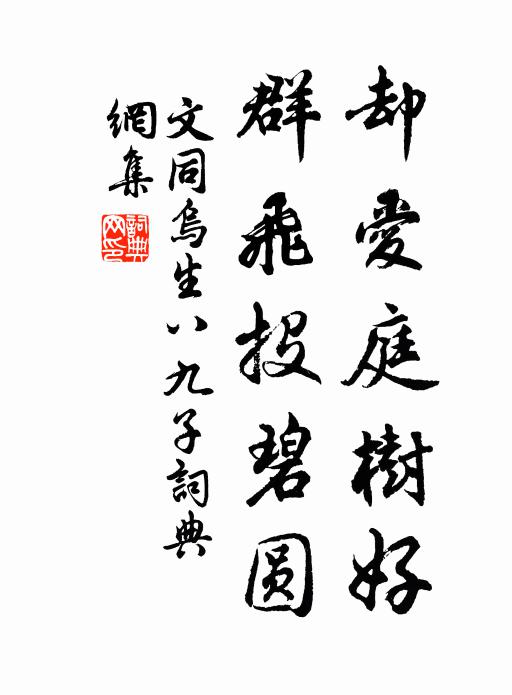 却愛庭樹好
群飛投碧圆
文同烏生八九子詞典
網集
詞典網印